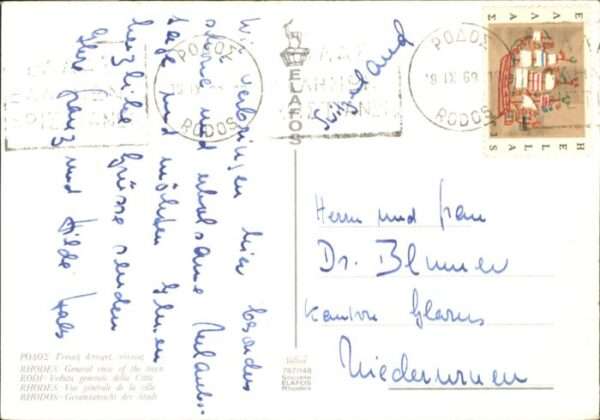 Wir verbringen hier besonders
schöne und erholsame Urlaubs-
tage und möchten Ihnen
herzliche Grüsse senden
Ihre Franz und Hilde
Switzerland
ΡΟΔΟΣ
RODOS
ELAFOS
ΡΟΔΟΣ
19 IX 69
RODOS
ΕΛΛΑΣ
HELLAS
Herrn und Frau
Dr. Blumer
Kanton Glarus
Niederurnen
ΡΟΔΟΣ Γενική άποψις πόλεως
RHODES - General view of the town
RODI - Veduta generale della Città
RHODES - Vue générale de la ville
RHODOS - Gesamtansicht der Stadt
787/148
Souvenir
ELAFOS
Rhodes